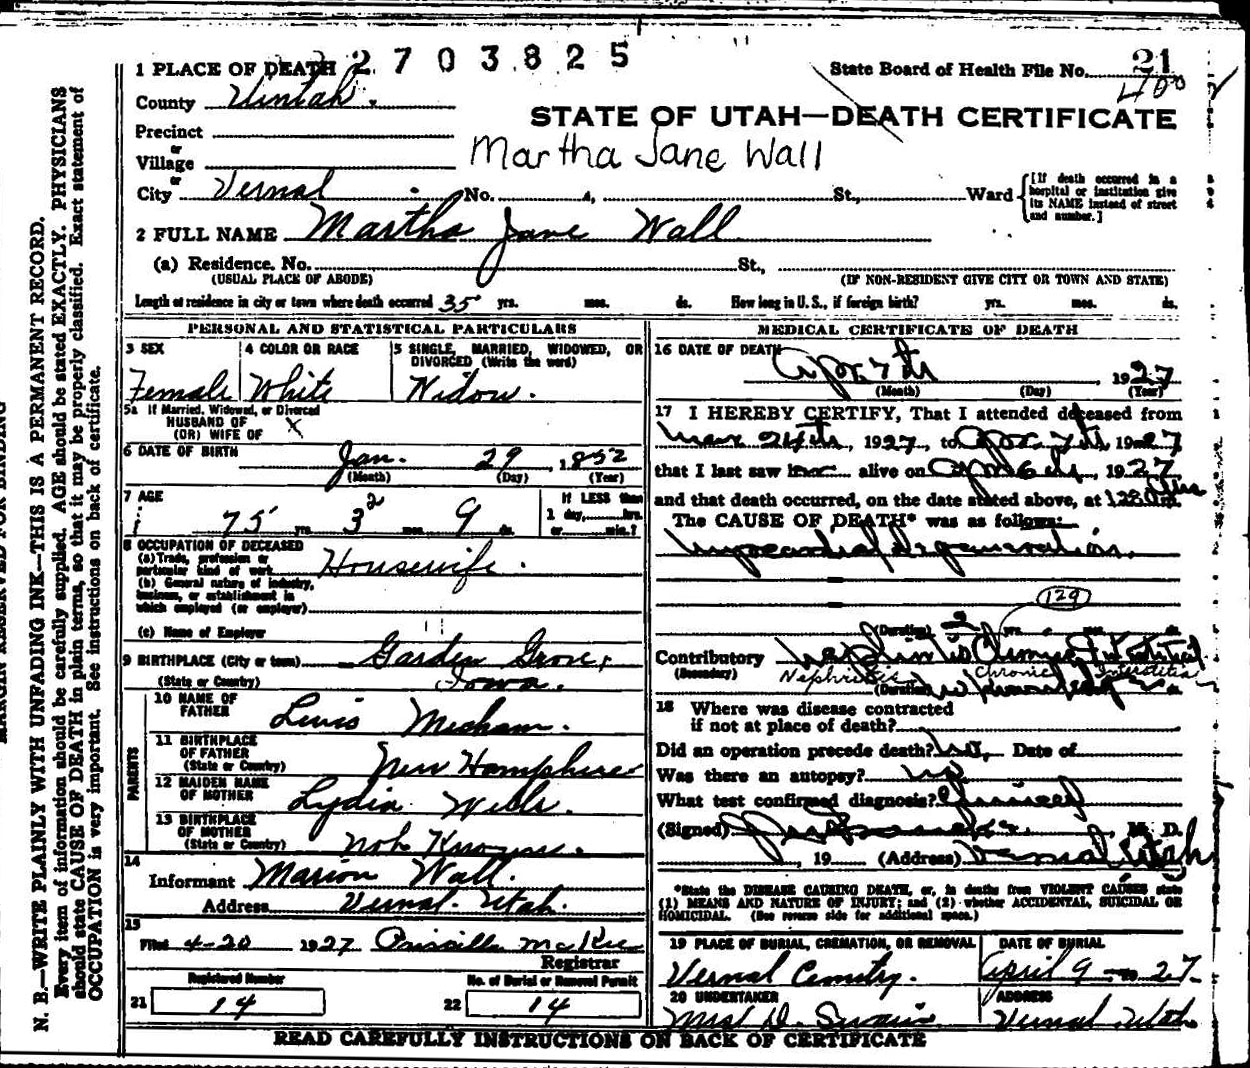 2703825
1 PLACE OF DEATH
State Board of Health File No. 21
400
County Uintah.
STATE OF UTAH—DEATH CERTIFICATE
Precinct
or
Village
Martha Jane Wall
or
City Vernal No. St., Ward
[If death occurred in a hospital or institution give its NAME instead of street and number.]
2 FULL NAME Martha Jane Wall
(a) Residence. No. St.,
(USUAL PLACE OF ABODE) (IF NON-RESIDENT GIVE CITY OR TOWN AND STATE)
Length of residence in city or town where death occurred 35 yrs. mos. ds. How long in U. S., if foreign birth? yrs. mos. ds.
PERSONAL AND STATISTICAL PARTICULARS
3 SEX 4 COLOR OR RACE 5 SINGLE, MARRIED, WIDOWED, OR DIVORCED (Write the word)
Female White Widow.
5a If Married, Widowed, or Divorced
HUSBAND OF
(OR) WIFE OF X
6 DATE OF BIRTH Jan. 29, 1852
(Month) (Day) (Year)
7 AGE If LESS than
75 yrs. 3 2 mos. 9 ds. 1 day, hrs.
or min.?
8 OCCUPATION OF DECEASED
(a) Trade, profession or
particular kind of work Housewife.
(b) General nature of industry,
business, or establishment in
which employed (or employer)
(c) Name of Employer
9 BIRTHPLACE (City or town) Garden Grove,
(State or Country) Iowa.
PARENTS
10 NAME OF
FATHER Lewis Mecham.
11 BIRTHPLACE
OF FATHER
(State or Country) New Hampshire
12 MAIDEN NAME
OF MOTHER Lydia Wells.
13 BIRTHPLACE
OF MOTHER
(State or Country) Not Known.
14
Informant Marion Wall.
Address Vernal. Utah.
15
Filed 4-20 1927 Priscilla McKee
Registrar
Registered Number No. of Burial or Removal Permit
21 14 22 14
MEDICAL CERTIFICATE OF DEATH
16 DATE OF DEATH
Apr. 7th, 1927
(Month) (Day) (Year)
17 I HEREBY CERTIFY, That I attended deceased from
Mar 24th, 1927, to Apr 7th 1927
that I last saw her alive on Apr 6th, 1927
and that death occurred, on the date stated above, at
The CAUSE OF DEATH* was as follows:
Myocardial degeneration.
129
(Duration) yrs. mos. ds.
Contributory Nephritis Chronic Interstitial
(Secondary) Nephritis Chronic Interstitial
(Duration)
18 Where was disease contracted
if not at place of death?
Did an operation precede death? No, Date of
Was there an autopsy? No
What test confirmed diagnosis? Clinical
(Signed) , M. D.
, 19 (Address) Vernal Utah
*State the DISEASE CAUSING DEATH, or, in deaths from VIOLENT CAUSES state
(1) MEANS AND NATURE OF INJURY; and (2) whether ACCIDENTAL, SUICIDAL OR
HOMICIDAL. (See reverse side for additional space.)
19 PLACE OF BURIAL, CREMATION, OR REMOVAL DATE OF BURIAL
Vernal Cemetry. April 9 – 27
20 UNDERTAKER ADDRESS
Mrs D. Swain Vernal Utah
READ CAREFULLY INSTRUCTIONS ON BACK OF CERTIFICATE
MARGIN RESERVED FOR BINDING
N. B.—WRITE PLAINLY WITH UNFADING INK—THIS IS A PERMANENT RECORD.
Every item of information should be carefully supplied. AGE should be stated EXACTLY. PHYSICIANS
should state CAUSE OF DEATH in plain terms, so that it may be properly classified. Exact statement of
OCCUPATION is very important. See instructions on back of certificate.